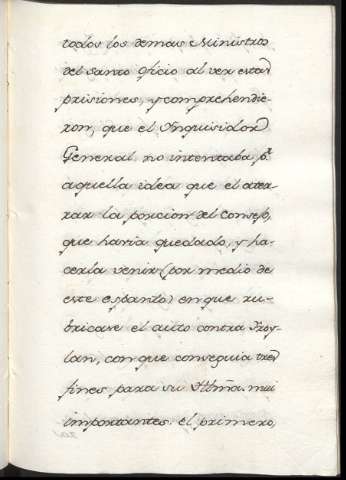 todos los demas Ministros
del Santo Oficio al ver estas
prisiones, y comprehendie-
ron, que el Inquisidor
General no intentaba pr.
aquella idea que el ater-
rar la porcion del Consejo,
que havia quedado, y ha-
cerla venir (por medio de
este espanto) en que ru-
bricase el auto contra Froy-
lan, con que conseguia tres
fines para su Illma. mui
importantes. el primero,